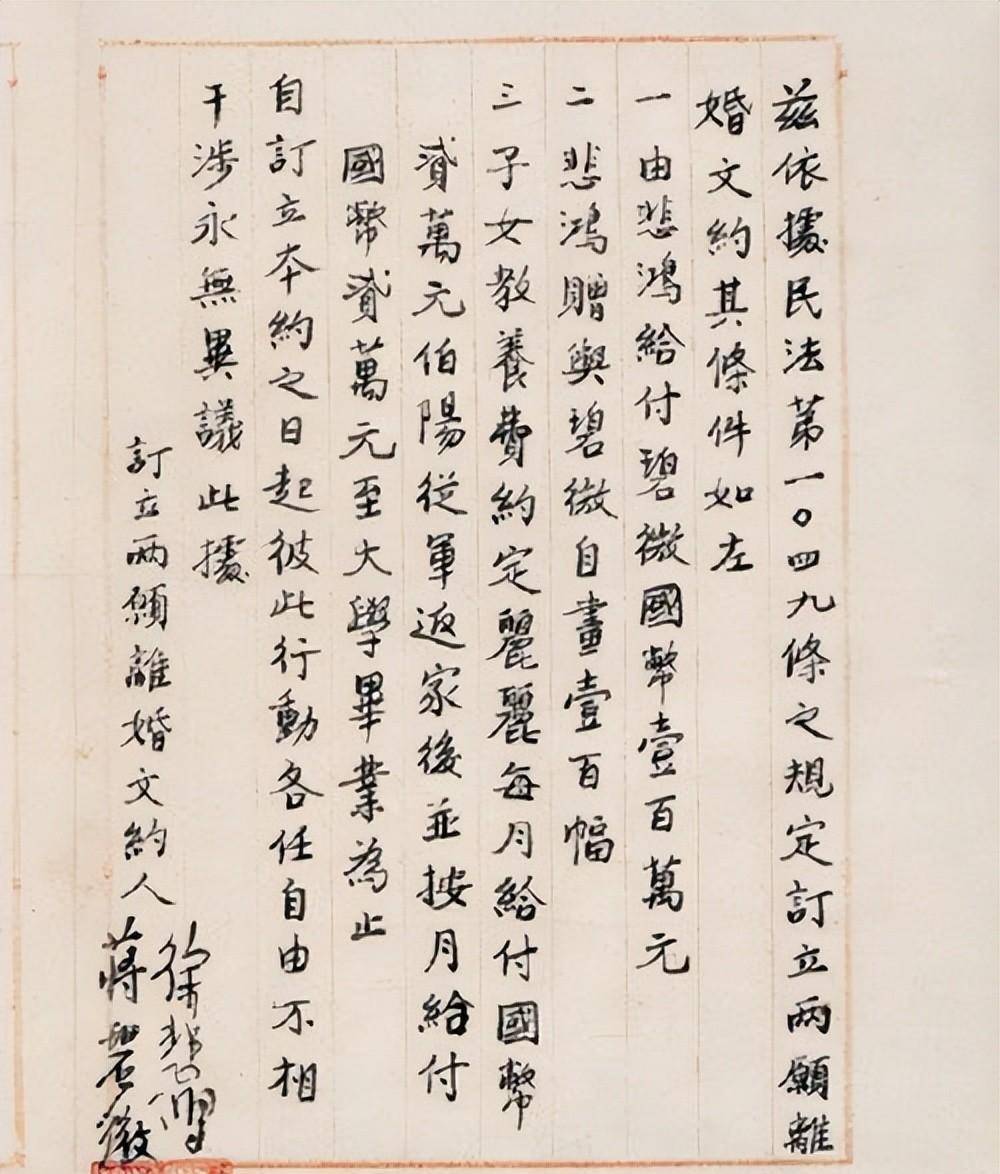 茲依據民法第一〇四九條之規定訂立兩願離
婚文約其條件如左
一由悲鴻給付碧微國幣壹百萬元
二悲鴻贈與碧微自畫壹百幅
三子女教養費約定麗麗每月給付國幣
貳萬元伯陽從軍返家後並按月給付
國幣貳萬元至大學畢業為止
自訂立本約之日起彼此行動各任自由不相
干涉永無異議此據
訂立兩願離婚文約人
徐悲鴻
蔣碧微